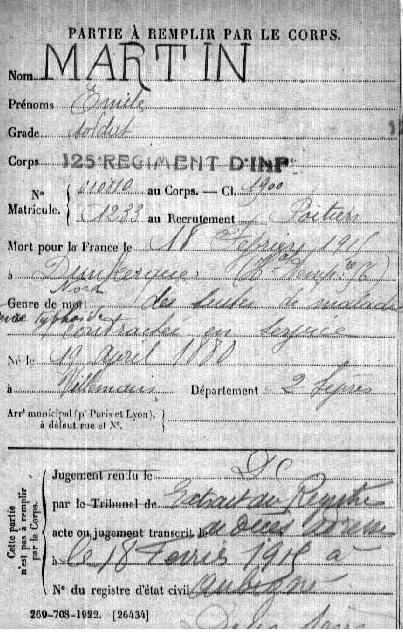 PARTIE À REMPLIR PAR LE CORPS.
Nom MARTIN
Prénoms Emile
Grade soldat
Corps 125e REGIMENT D'INF
No au Corps. — Cl. 1900
Matricule. 1233 au Recrutement Poitiers
Mort pour la France le 18 Février 1915
à Dunkerque
Nord
Genre de mort des suites de maladie
fièvre typhoïde contractée en service
Né le 19 avril 1880
à Villemain Département 2 Sèvres
Arrt municipal (pr Paris et Lyon),
à défaut rue et No.
Cette partie
n'est pas à remplir
par le Corps.
Jugement rendu le
par le Tribunal de Extrait du Registre
acte ou jugement transcrit le de Décès
à le 18 Février 1915 à
No du registre d'état civil Aubigné
269-708-1922. [26434]